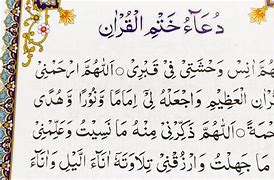 دُعَاءُ خَتْمِ الْقُرْاٰنِ
اٰنِسْ وَحْشَتِيْ فِيْ قَبْرِيْ ○ اَللّٰهُمَّ ارْحَمْنِيْ
الْعَظِيْمِ وَاجْعَلْهُ لِيْ اِمَامًا وَّنُوْرًا وَّهُدًى
○ اَللّٰهُمَّ ذَكِّرْنِيْ مِنْهُ مَا نَسِيْتُ وَعَلِّمْنِيْ
مَا جَهِلْتُ وَارْزُقْنِيْ تِلَاوَتَهٗ اٰنَآءَ الَّيْلِ وَاٰنَآءَ